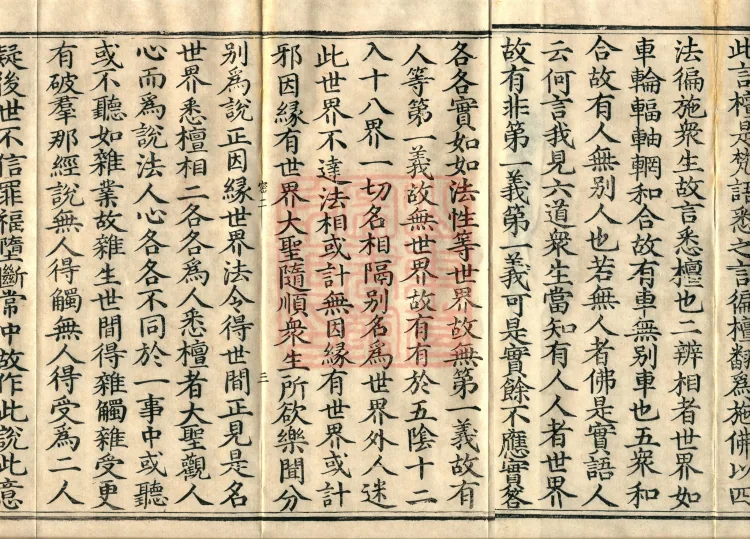 此言檀是梵語悉之言徧檀翻為施佛以四
法徧施衆生故言悉檀也二辨相者世界如
車輪輻軸輞和合故有車無別車也五衆和
合故有人無別人也若無人者佛是實語人
云何言我見六道衆生當知有人人者世界
故有非第一義第一義可是實餘不應實答
各各實如如法性等世界故無第一義故有
人等第一義故無世界故有有於五陰十二
入十八界一切名相隔別名為世界外人迷
此世界不達法相或計無因緣有世界或計
邪因緣有世界大聖隨順衆生所欲樂聞分
密二
三
別為說正因緣世界法令得世間正見是名
世界悉檀相二各各為人悉檀者大聖觀人
心而為說法人心各各不同於一事中或聽
或不聽如雜業故雜生世間得雜觸雜受更
有破羣那經說無人得觸無人得受為二人
疑後世不信罪福墮斷常中故作此說此意